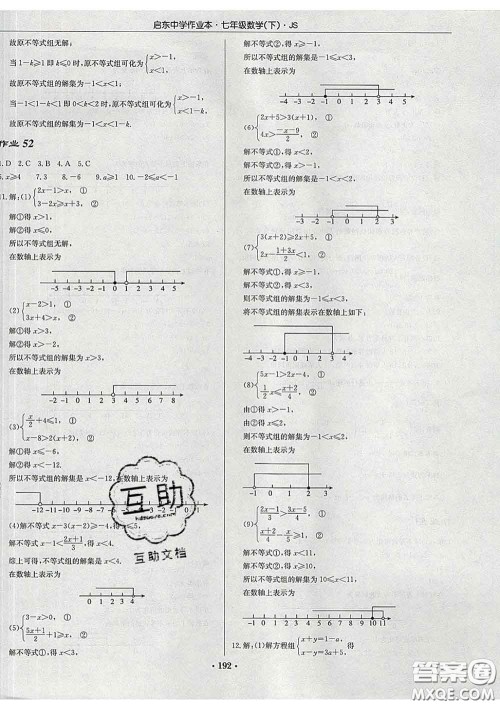 启东中学作业本·七年级数学(下)·JS
故原不等式组无解;
当1-k≥1即k≤0时,原不等式组可化为{x>-1, x<1,
故原不等式组的解集为-1<x<1;
当-1<1-k<1即0<k<2时,原不等式组可化为{x>-1, x<1-k,
故原不等式组的解集为-1<x<1-k.
作业 52
1. D 2. C 3. B 4. A 5. C
6. x≥4 7. 3 8. -6 9. a≥1 10. -2≤a<-1
11. 解:(1){2x-1>x, ① 3-2x≥x+3, ②
解①得x>1.
解②得x≤0.
所以不等式组无解,
在数轴上表示为
-5 -4 -3 -2 -1 0 1 2 3 4 5
(2){x-2>1, ① 3x+4>x, ②
解①得x>3.
解②得x>-2.
所以不等式组的解集为x>3,
在数轴上表示为
-2 -1 0 1 2 3 4 5 6 7 8
(3){x/2+4≤1, ① x-8>2(x+2), ②
解①得x≤-6.
解②得x<-12.
所以不等式组的解集是x<-12,在数轴上表示为
-12 -11
(4)解不等式x-3(x-2)≥-4,得x≤5,
解不等式x-1<(2x+1)/3,得x<4.
综上可得,不等式组的解集是x<4.
在数轴上表示为
0 1 2 3 4
(5){3-x>0, ① (5x+1)/2+1≥x, ②
解不等式①,得x<3,
解不等式②,得x≥-1,
所以不等式组的解集为-1≤x<3,
在数轴上表示为
-4 -3 -2 -1 0 1 2 3 4
(6){2x+5>3(x+1), ① 4x>-(x-9)/2, ②
解不等式①,得x<2,
解不等式②,得x>1,
所以不等式组的解集为1<x<2,
在数轴上表示为
-4 -3 -2 -1 0 1 2 3 4
(7){3(x+2)≥2x+5, ① 2x-(1+3x)/2<1, ②
解不等式①,得x≥-1,
解不等式②,得x<3,
则不等式组的解集为-1≤x<3,
将不等式组的解集表示在数轴上如下:
-4 -3 -2 -1 0 1 2 3 4
(8){5x-1>2x-4, ① 1/2x≤(x+2)/4, ②
由①得x>-1,
由②得x≤2,
则不等式组的解集为-1<x≤2,
在数轴上表示为
-1 0 1 2 3
(9)
解不等式①,得x<11,
解不等式②,得x≥10,
所以不等式组的解集为10≤x<11,
在数轴上表示为
0 1 2 3 4 5 6 7 8 9 10 11
12. 解:(1)解方程组{x+y=1-a, x-y=3a+5, 得
·192·
互助
互助文档
答案圈
MXQE.COM